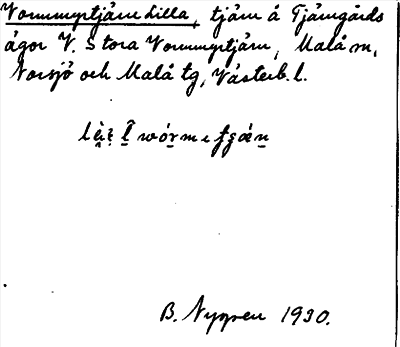 Vormmyrtjärn Lilla, tjärn å Tjärngårds
ägor V. Stora Vormmyrtjärn, Malå sn,
Norsjö och Malå tg, Västerb. l.
B. Nygren 1930.